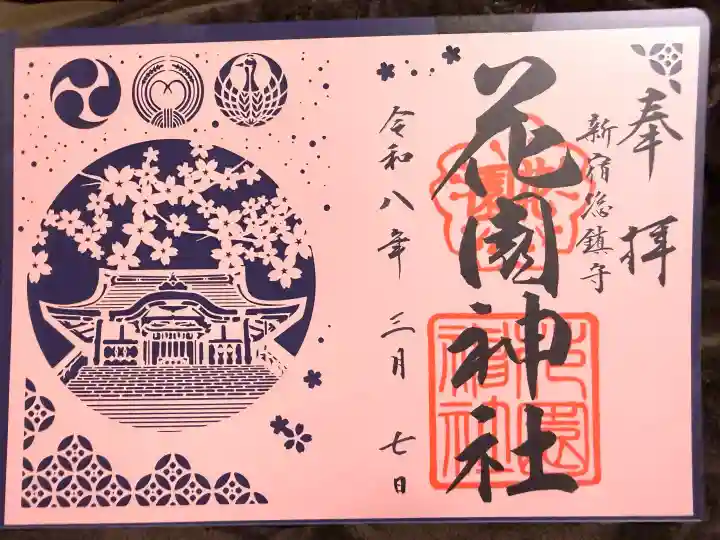 奉拝
新宿総鎮守
花園神社
令和八年三月七日
花園神社